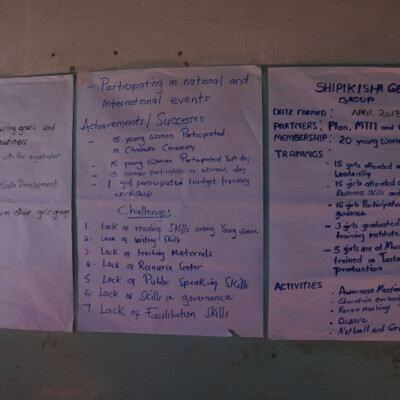 goats and
business
with the
Youth Development
other girls group
- Participating in national and
International events
Achievements/Successes
- 15 young women Participated
in Chabuka Ceremony
- 15 young women Participated
- 15 women participate in womens day
- 1 girl participated budget tracking
workshop
Challenges
1. Lack of reading Skills among Young women
2. Lack of writing Skills
3. Lack of teaching Materials
4. Lack of Resource Center
5. Lack of Public Speaking Skills
6. Lack of Skills in governance
7. Lack of Facilitation Skills
SHIPIKISHA GE
GROUP
DATE FORMED: APRIL 2013
PARTNERS: Plan, MTII and
MEMBERSHIP: 20 young Wom
TRAININGS:
- 15 girls attended
Leadership
- 15 girls attended
Business Skills and
- 15 girls Participate
guidance
- 3 girls graduated
training institute
- 5 girls are at
trained in
production
ACTIVITIES
- Awareness Meetin
- Education
- Review meetings
- Netball and